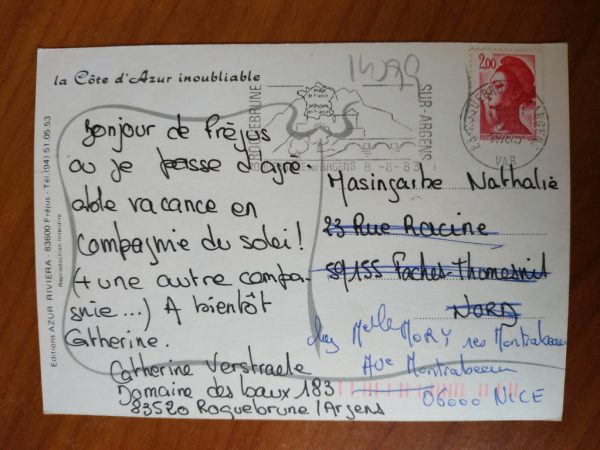 la Côte d'Azur inoubliable
Bonjour de Fréjus
ou je passe d'agré-
able vacance en
compagnie du soleil!
(+ une autre compa-
gnie...) A bientôt
Catherine.
Catherine Verstraele
Domaine des baux 183
83520 Roquebrune/Argens
Editions AZUR RIVIERA - 83600 Fréjus - Tél. (94) 51.05.53
Reproduction interdite
14079
2,00
ROQUEBRUNE
SUR-ARGENS
8-8-83
VAR
Masingarbe Nathalie
23 Rue Racine
59155 Faches-Thumesnil
NORD
chez Melle MORY res Montrabeau
Ave Montrabeau
06000 NICE